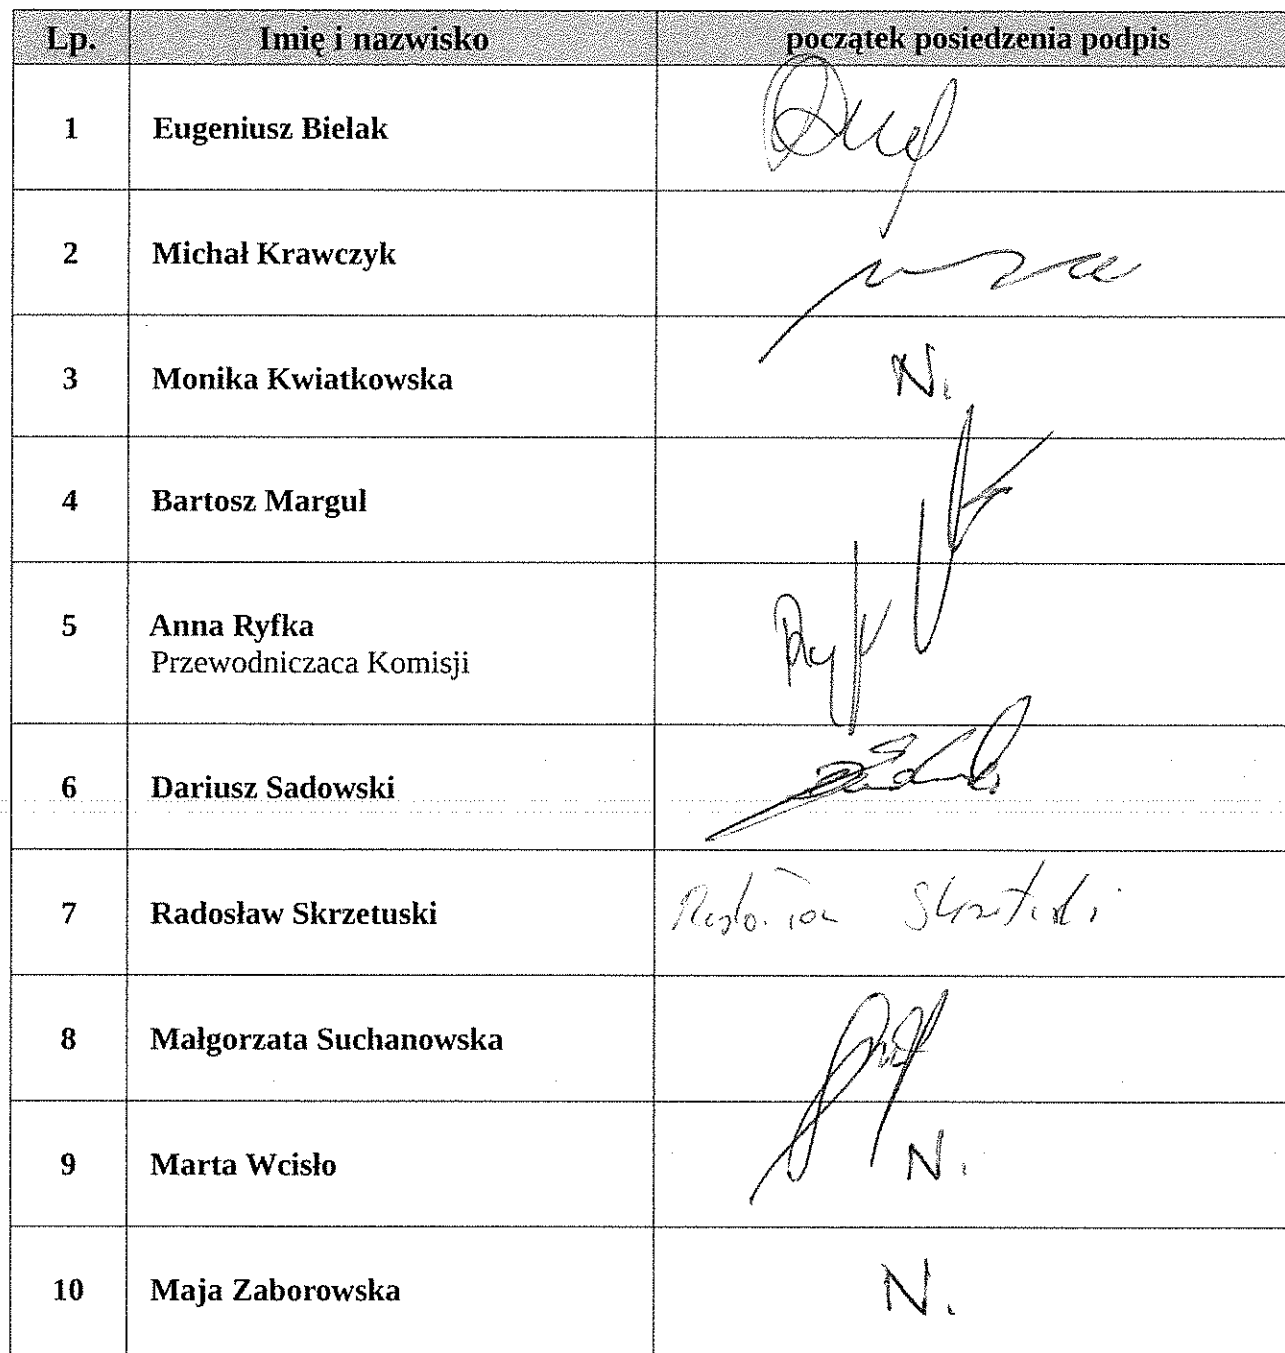 Lp. Imię i nazwisko początek posiedzenia podpis
1 Eugeniusz Bielak
2 Michał Krawczyk
3 Monika Kwiatkowska N.
4 Bartosz Margul
5 Anna Ryfka
Przewodniczaca Komisji
6 Dariusz Sadowski
7 Radosław Skrzetuski
8 Małgorzata Suchanowska
9 Marta Wcisło N.
10 Maja Zaborowska N.